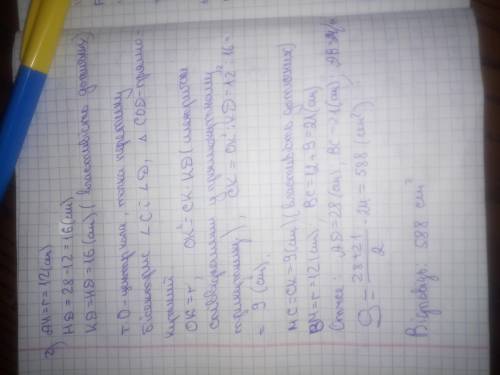 AH = r = 12 (см)
HD = 28 - 12 = 16 (см)
KD = HD = 16 (см) (властивість дотичних)
т. O - центр кола, точка перетину
бісектрис ∠C і ∠D, △ COD - прямо-
кутний
OK = r, OK² = CK · KD (метричні
співвідношення у прямокутному
трикутнику), CK = OK² : KD = 12² : 16 =
= 9 (см),
MC = CK = 9 (см) (властивість дотичних)
BM = r = 12 (см), BC = 12 + 9 = 21 (см)
Отже: AD = 28 (см), BC = 21 (см),
S = (28 + 21)/2 · 24 = 588 (см²)
Відповідь: 588 см²